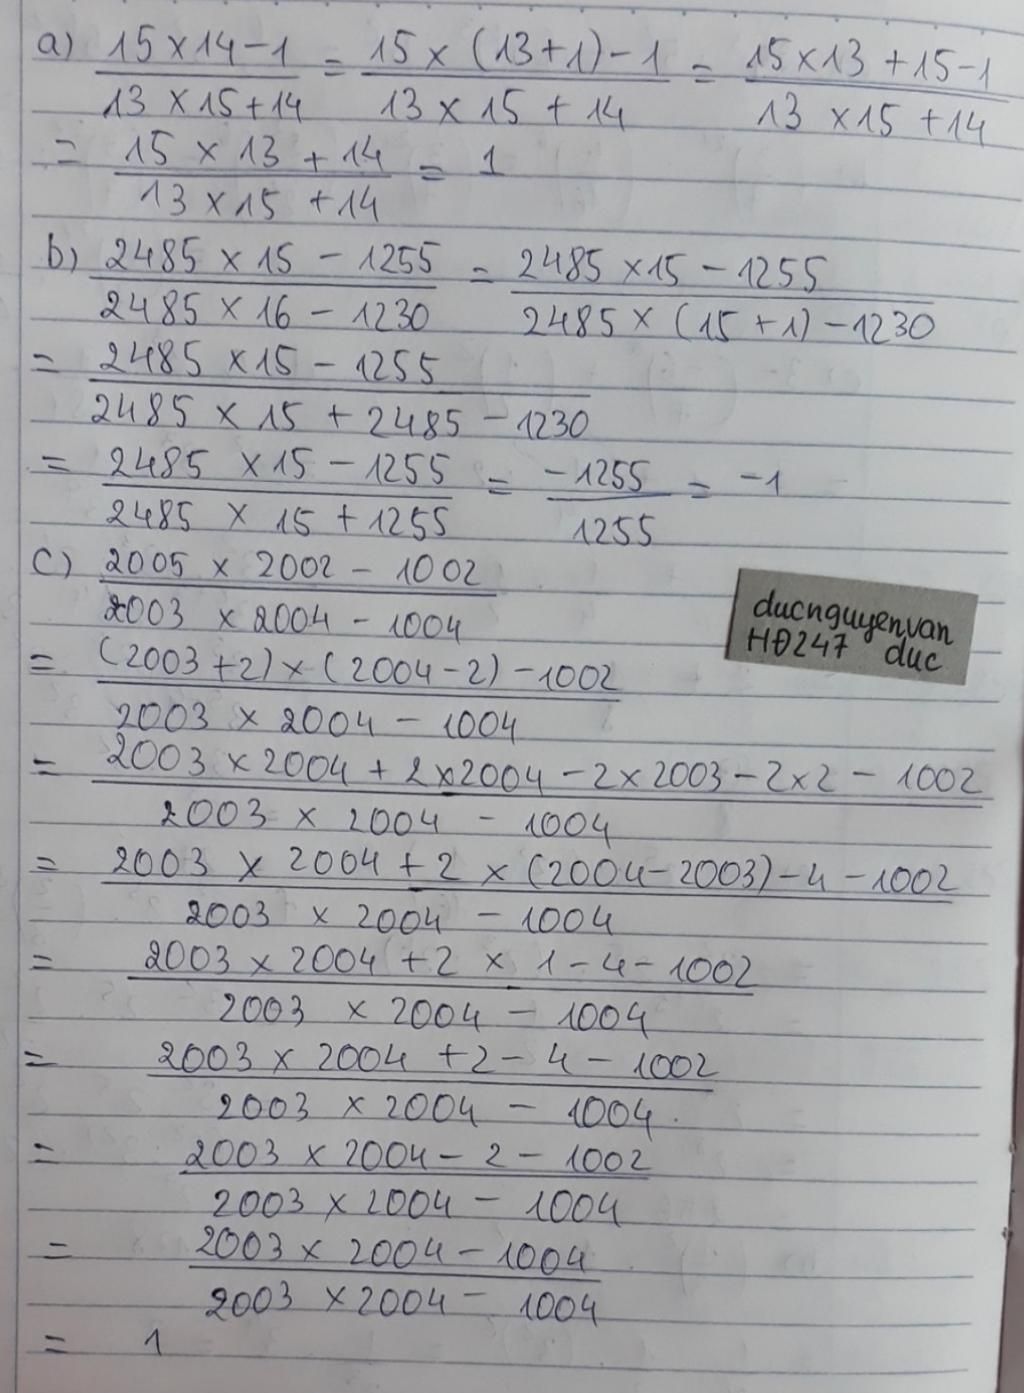 a) 15×14-1 / 13×15+14 = 15×(13+1)-1 / 13×15+14 = 15×13+15-1 / 13×15+14
= 15×13+14 / 13×15+14 = 1
b) 2485×15-1255 / 2485×16-1230 = 2485×15-1255 / 2485×(15+1)-1230
= 2485×15-1255 / 2485×15+2485-1230
= 2485×15-1255 / 2485×15+1255 = -1255 / 1255 = -1
c) 2005×2002-1002 / 2003×2004-1004
= (2003+2)×(2004-2)-1002 / 2003×2004-1004
= 2003×2004+2×2004-2×2003-2×2-1002 / 2003×2004-1004
= 2003×2004+2×(2004-2003)-4-1002 / 2003×2004-1004
= 2003×2004+2×1-4-1002 / 2003×2004-1004
= 2003×2004+2-4-1002 / 2003×2004-1004
= 2003×2004-2-1002 / 2003×2004-1004
= 2003×2004-1004 / 2003×2004-1004
= 1
ducnguyenvan
HĐ247 duc